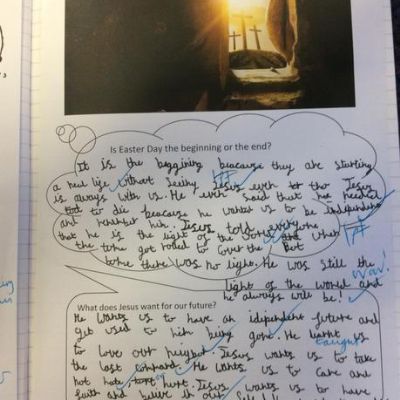 Is Easter Day the beginning or the end?
It is the beggining beacause they are starting
a new life without seeing Jesus even tho Jesus
is always with us. He even said that he needed
to die beacause he wants us to be independent
and remember him. Jesus told everyone
that he is the light of the world and when
the tome got rolled to cover the
tome there was no light. He was still the
light of the world and
he always will be!
Wow!
What does Jesus want for our future?
He wants us to have an idipendent future and
get used to him being gone. He learnt us
taught
to love our neighbor. Jesus wants us to take
the last
not hate or hurt. Jesus wants us to have
faith and believe in our